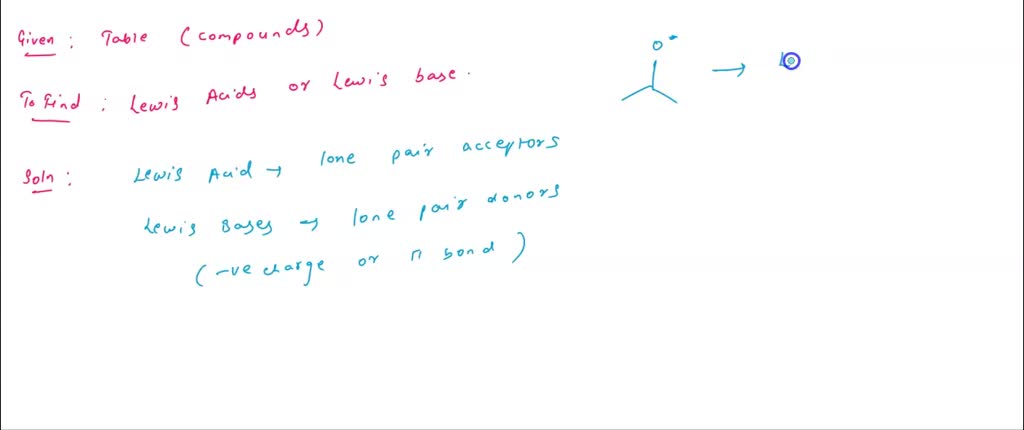 Given : Table (compounds)
To Find : Lewis Acids or Lewis base.
Soln : Lewis Acid → lone pair acceptors
Lewis Bases → lone pair donors
(-ve charge or π bond)
O⁻
→